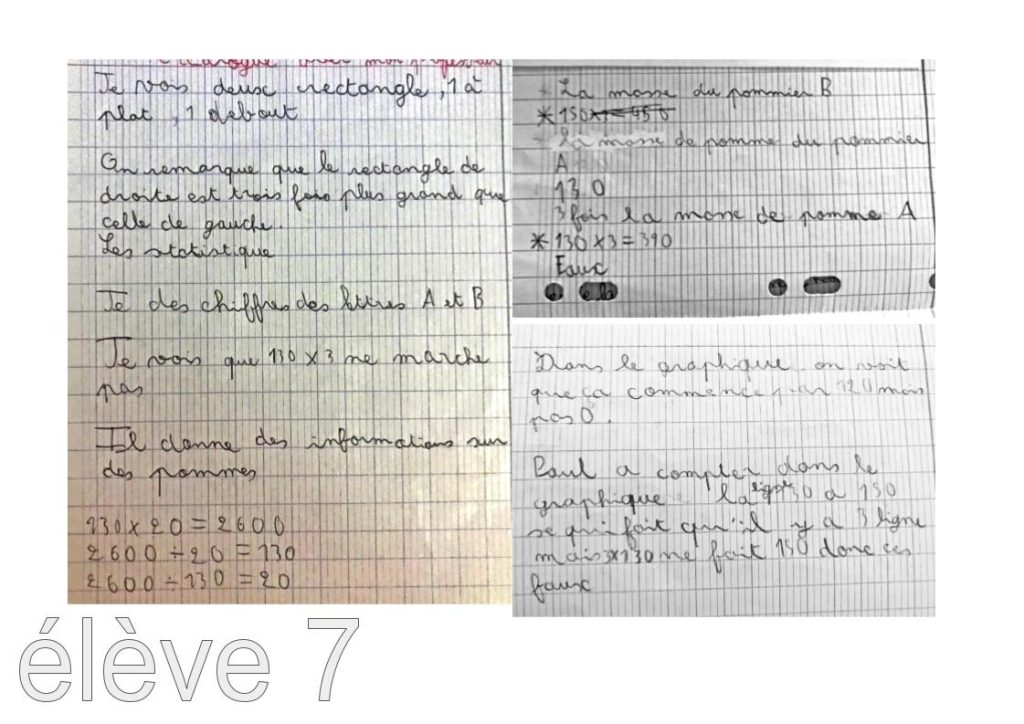 dialogue avec mon professeur
Je vois deusc rectangle, 1 à
plat, 1 debout
On remarque que le rectangle de
droite est trois fois plus grand que
celle de gauche.
Les statistique
Je des chiffres des lettres A et B
Je vois que 130 x 3 ne marche
pas
Il donne des informations sur
des pommes
130 x 20 = 2600
2600 ÷ 20 = 130
2600 ÷ 130 = 20
- La masse du pommier B
* 150
- la masse de pomme du pommier
A
130
3 fois la masse de pomme A
* 130 x 3 = 390
Faux
Dans le graphique on voit
que ça commence par 120 mais
pas 0.
Paul a compter dans le
graphique la ligne 130 a 150
se qui fait qu'il y a 3 ligne
mais 3x130 ne fait 150 donc ces
faux
élève 7